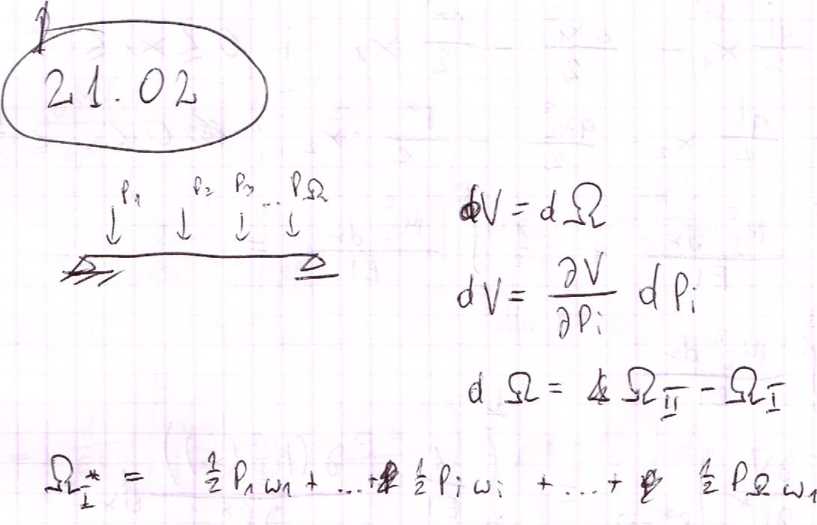 21.02
P₁ P₂ P₃ ... P_Ω
dV = dΩ
dV = ∂V/∂Pᵢ dPᵢ
dΩ = Ω_II - Ω_I
Ω_I* = ½ P₁ω₁ + ... + ½ Pᵢωᵢ + ... + ½ P_Ω ω₁